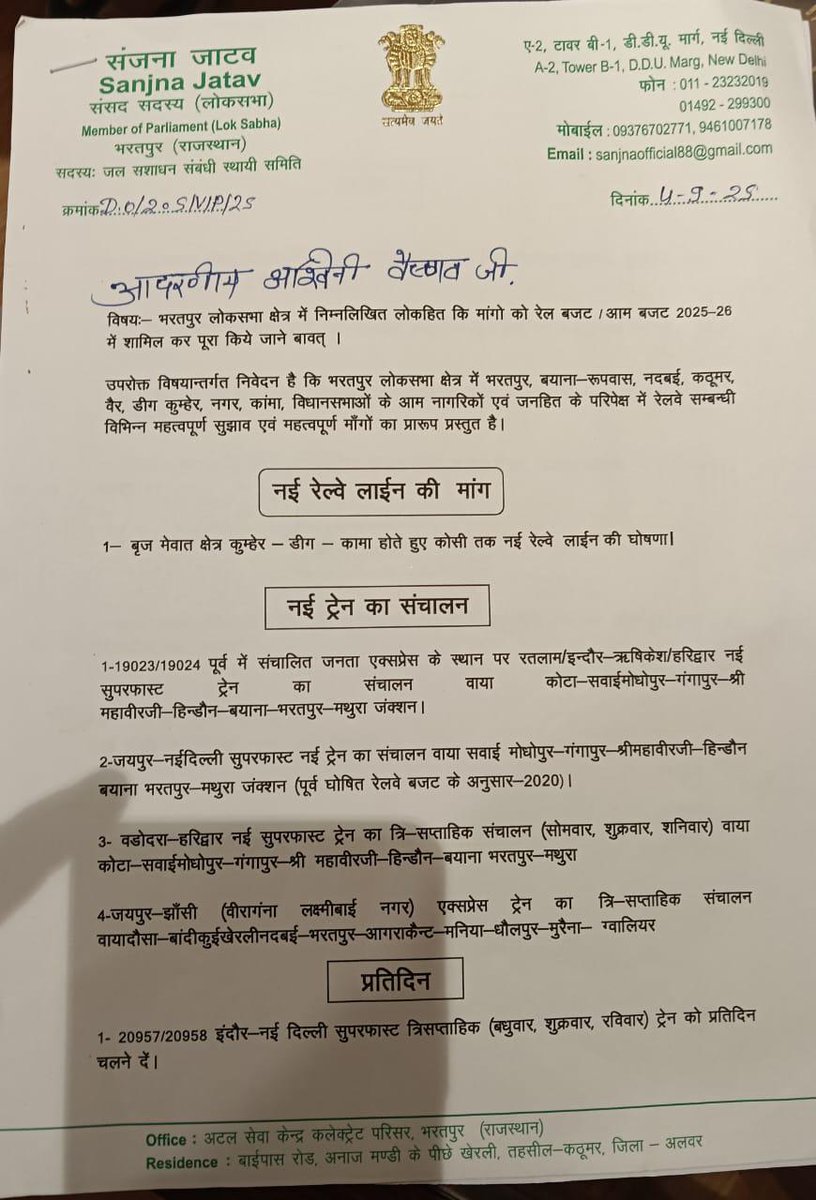 संजना जाटव
Sanjna Jatav
संसद सदस्य (लोकसभा)
Member of Parliament (Lok Sabha)
भरतपुर (राजस्थान)
सदस्यः जल सशाधन संबंधी स्थायी समिति
क्रमांक D.O/205/VIP/25
सत्यमेव जयते
ए-2, टावर बी-1, डी.डी.यू. मार्ग, नई दिल्ली
A-2, Tower B-1, D.D.U. Marg, New Delhi
फोन : 011 - 23232019
01492 - 299300
मोबाईल : 09376702771, 9461007178
Email : sanjnaofficial88@gmail.com
दिनांक 4-9-25
आदरणीय अश्विनी वैष्णव जी.
विषयः– भरतपुर लोकसभा क्षेत्र में निम्नलिखित लोकहित कि मांगो को रेल बजट / आम बजट 2025–26
में शामिल कर पूरा किये जाने बावत् ।
उपरोक्त विषयान्तर्गत निवेदन है कि भरतपुर लोकसभा क्षेत्र में भरतपुर, बयाना–रूपवास, नदबई, कठूमर,
वैर, डीग कुम्हेर, नगर, कांमा, विधानसभाओं के आम नागरिकों एवं जनहित के परिपेक्ष में रेलवे सम्बन्धी
विभिन्न महत्वपूर्ण सुझाव एवं महत्वपूर्ण माँगों का प्रारूप प्रस्तुत है।
नई रेल्वे लाईन की मांग
1– बृज मेवात क्षेत्र कुम्हेर – डीग – कामा होते हुए कोसी तक नई रेल्वे लाईन की घोषणा।
नई ट्रेन का संचालन
1-19023/19024 पूर्व में संचालित जनता एक्सप्रेस के स्थान पर रतलाम/इन्दौर–ऋषिकेश/हरिद्वार नई
सुपरफास्ट ट्रेन का संचालन वाया कोटा–सवाईमोघोपुर–गंगापुर–श्री
महावीरजी–हिन्डौन–बयाना–भरतपुर–मथुरा जंक्शन।
2-जयपुर–नईदिल्ली सुपरफास्ट नई ट्रेन का संचालन वाया सवाई मोघोपुर–गंगापुर–श्रीमहावीरजी–हिन्डौन
बयाना भरतपुर–मथुरा जंक्शन (पूर्व घोषित रेलवे बजट के अनुसार–2020)।
3- वडोदरा–हरिद्वार नई सुपरफास्ट ट्रेन का त्रि–सप्ताहिक संचालन (सोमवार, शुक्रवार, शनिवार) वाया
कोटा–सवाईमोघोपुर–गंगापुर–श्री महावीरजी–हिन्डौन–बयाना भरतपुर–मथुरा
4-जयपुर–झाँसी (वीरागंना लक्ष्मीबाई नगर) एक्सप्रेस ट्रेन का त्रि–सप्ताहिक संचालन
वायादौसा–बांदीकुईखेरलीनदबई–भरतपुर–आगराकैन्ट–मनिया–धौलपुर–मुरैना– ग्वालियर
प्रतिदिन
1- 20957/20958 इंदौर–नई दिल्ली सुपरफास्ट त्रिसप्ताहिक (बधुवार, शुक्रवार, रविवार) ट्रेन को प्रतिदिन
चलने दें।
Office : अटल सेवा केन्द्र कलेक्ट्रेट परिसर, भरतपुर (राजस्थान)
Residence : बाईपास रोड, अनाज मण्डी के पीछे खेरली, तहसील–कठूमर, जिला – अलवर